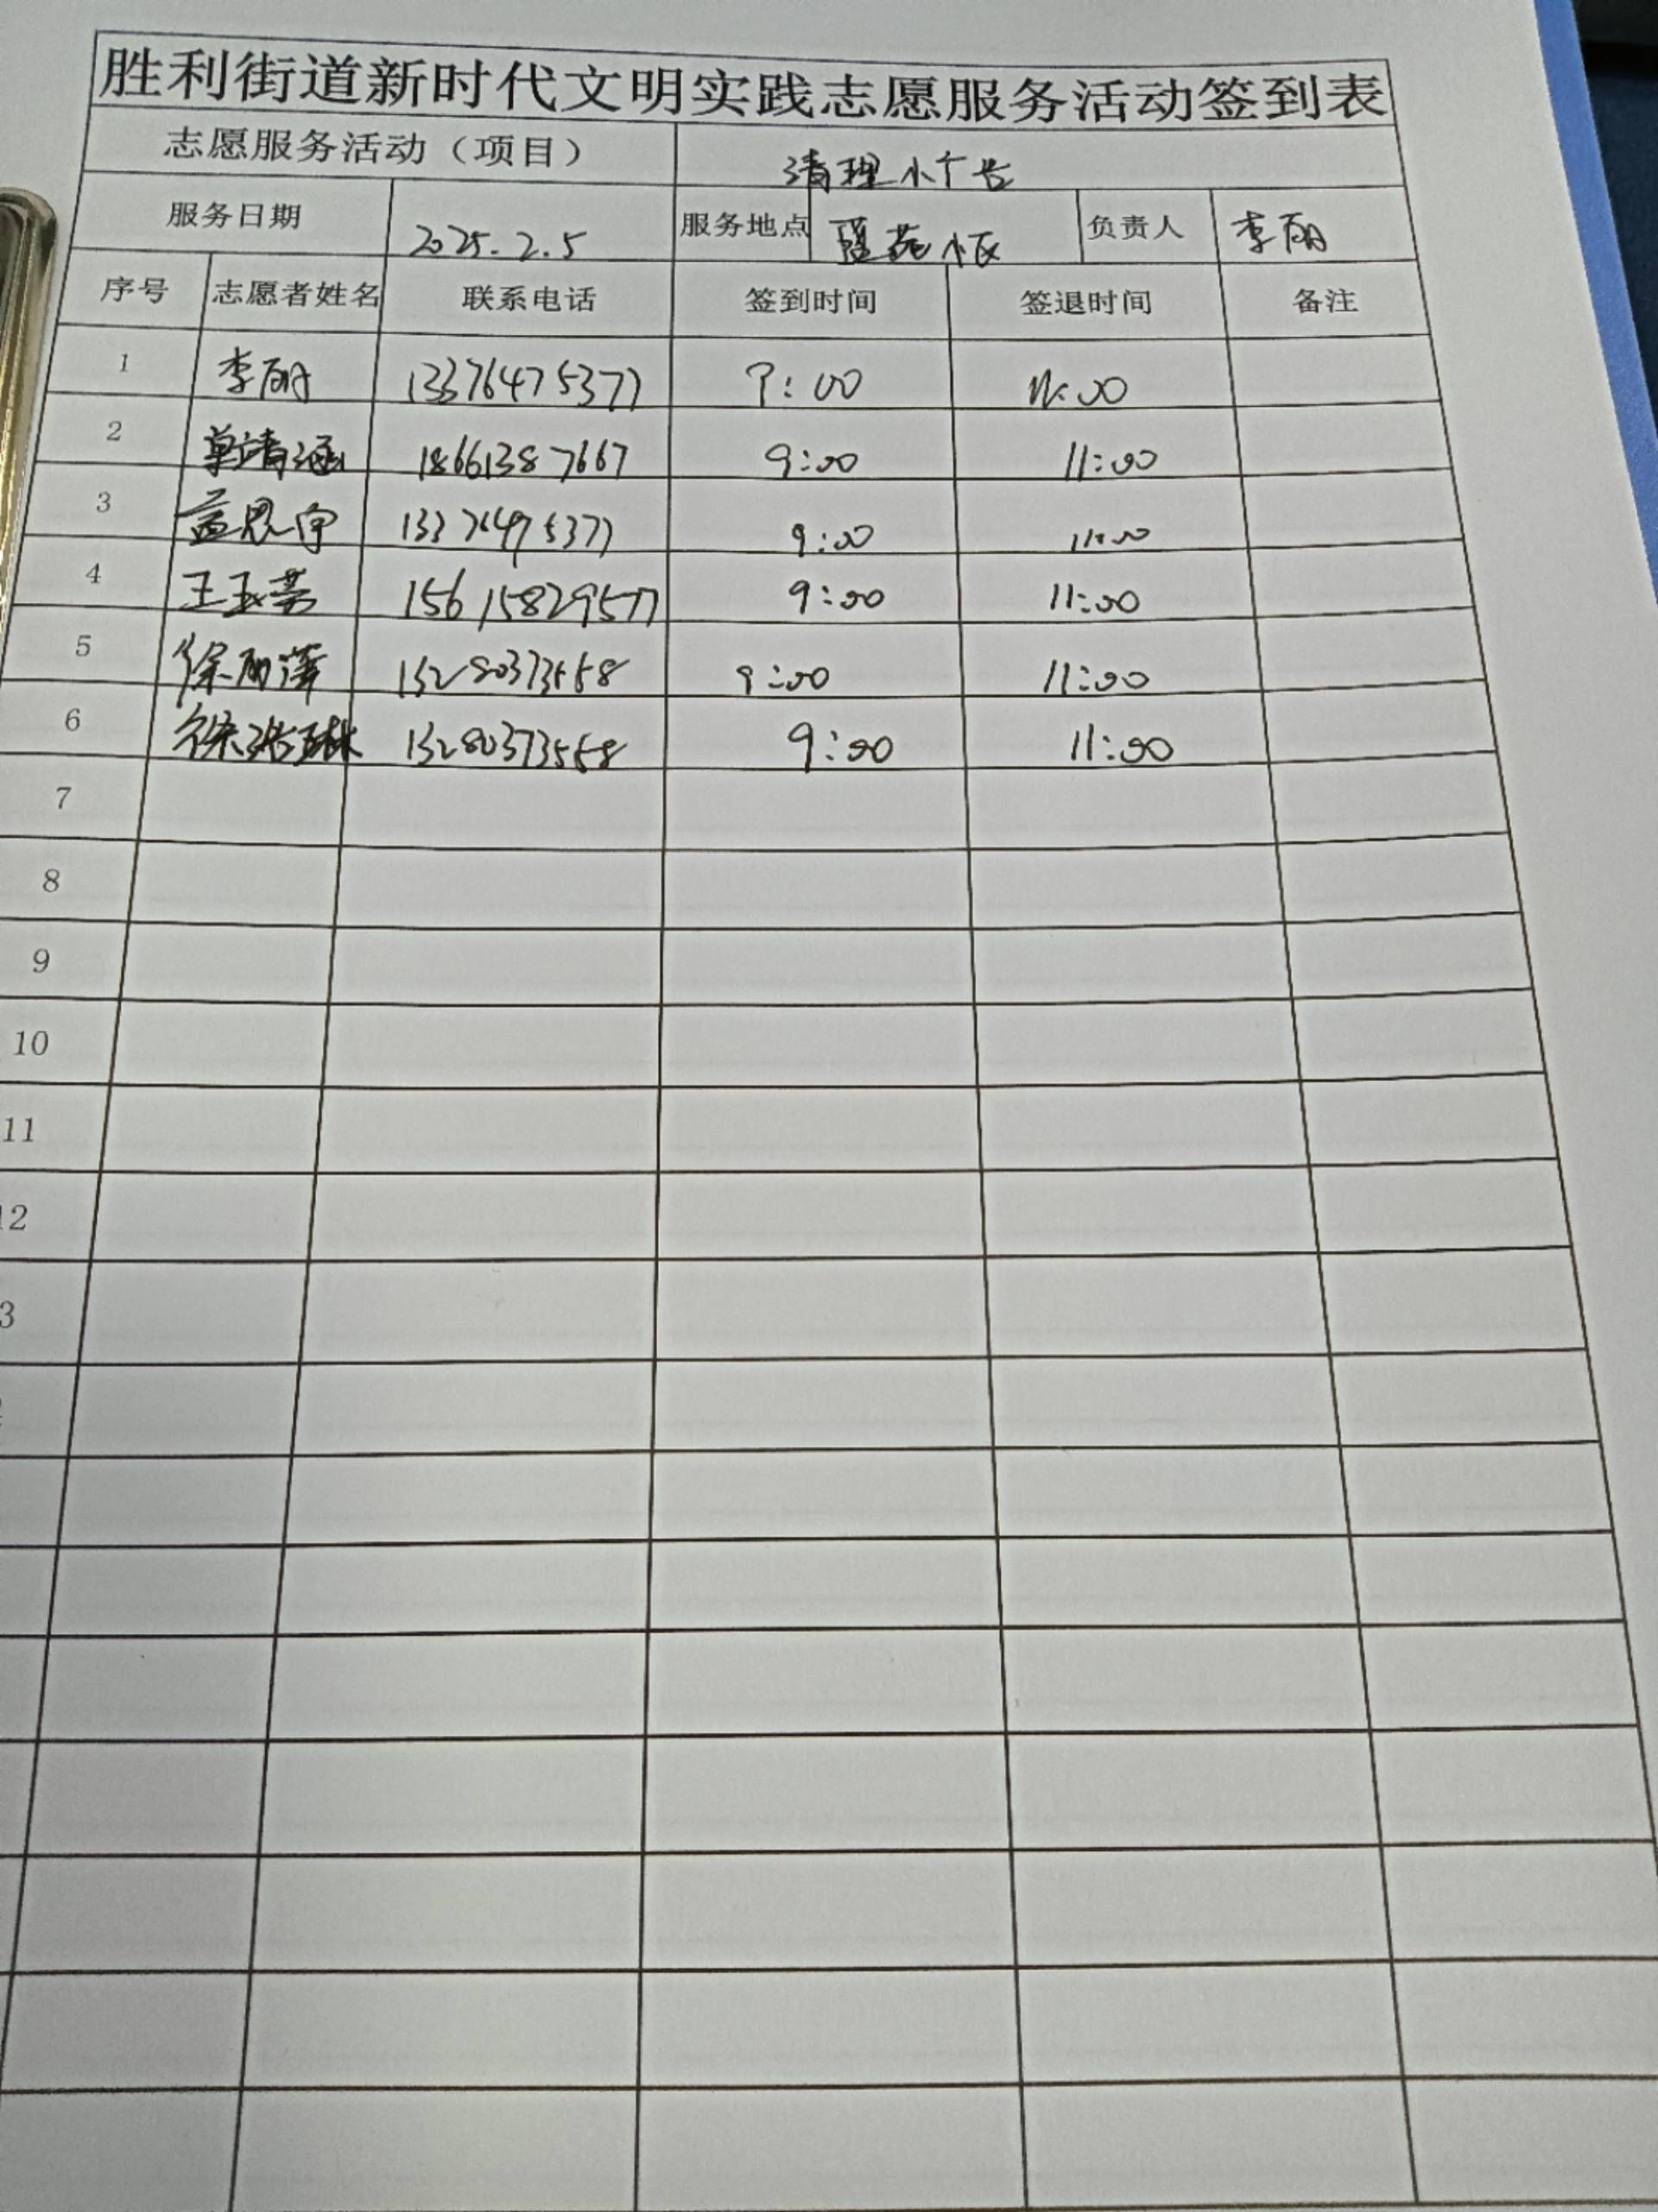 胜利街道新时代文明实践志愿服务活动签到表
志愿服务活动（项目） 清理小广告
服务日期 2025.2.5 服务地点 小区 负责人 李丽
序号 志愿者姓名 联系电话 签到时间 签退时间 备注
1 李丽 13376475377 9:00 11:00
2 单靖涵 18661387667 9:00 11:00
3 思宇 13376475377 9:00 11:00
4 王玉芳 15615829577 9:00 11:00
5 徐丽萍 13280373558 9:00 11:00
6 徐张琳 13280373558 9:00 11:00
7
8
9
10
11
12
3